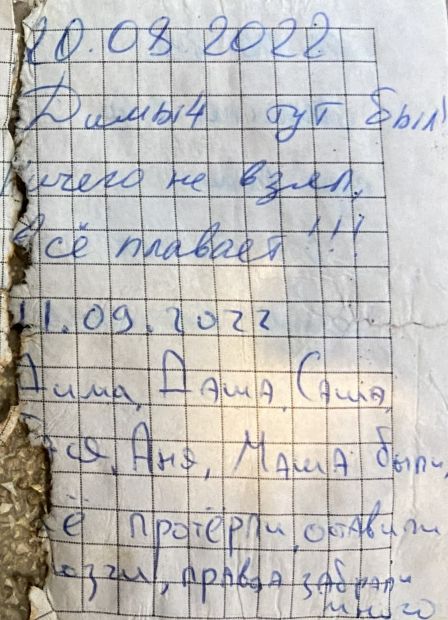 20.08.2022
Димыч тут был
ничего не взял,
Всё плавает!!!
11.09.2022
Дима, Даша, Саша,
Аня, Маша были,
всё протёрли, оставили
правда забрали
много